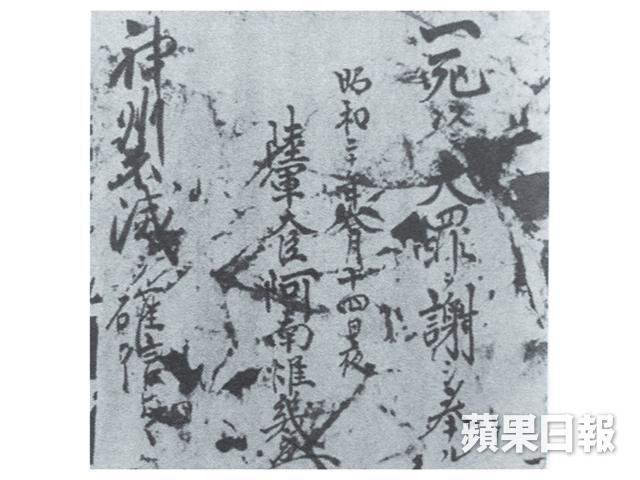 一死以テ大罪ヲ謝シ奉ル
昭和二十年八月十四日夜
陸軍大臣阿南惟幾
神州不滅ヲ確信シツヽ
蘋果日報